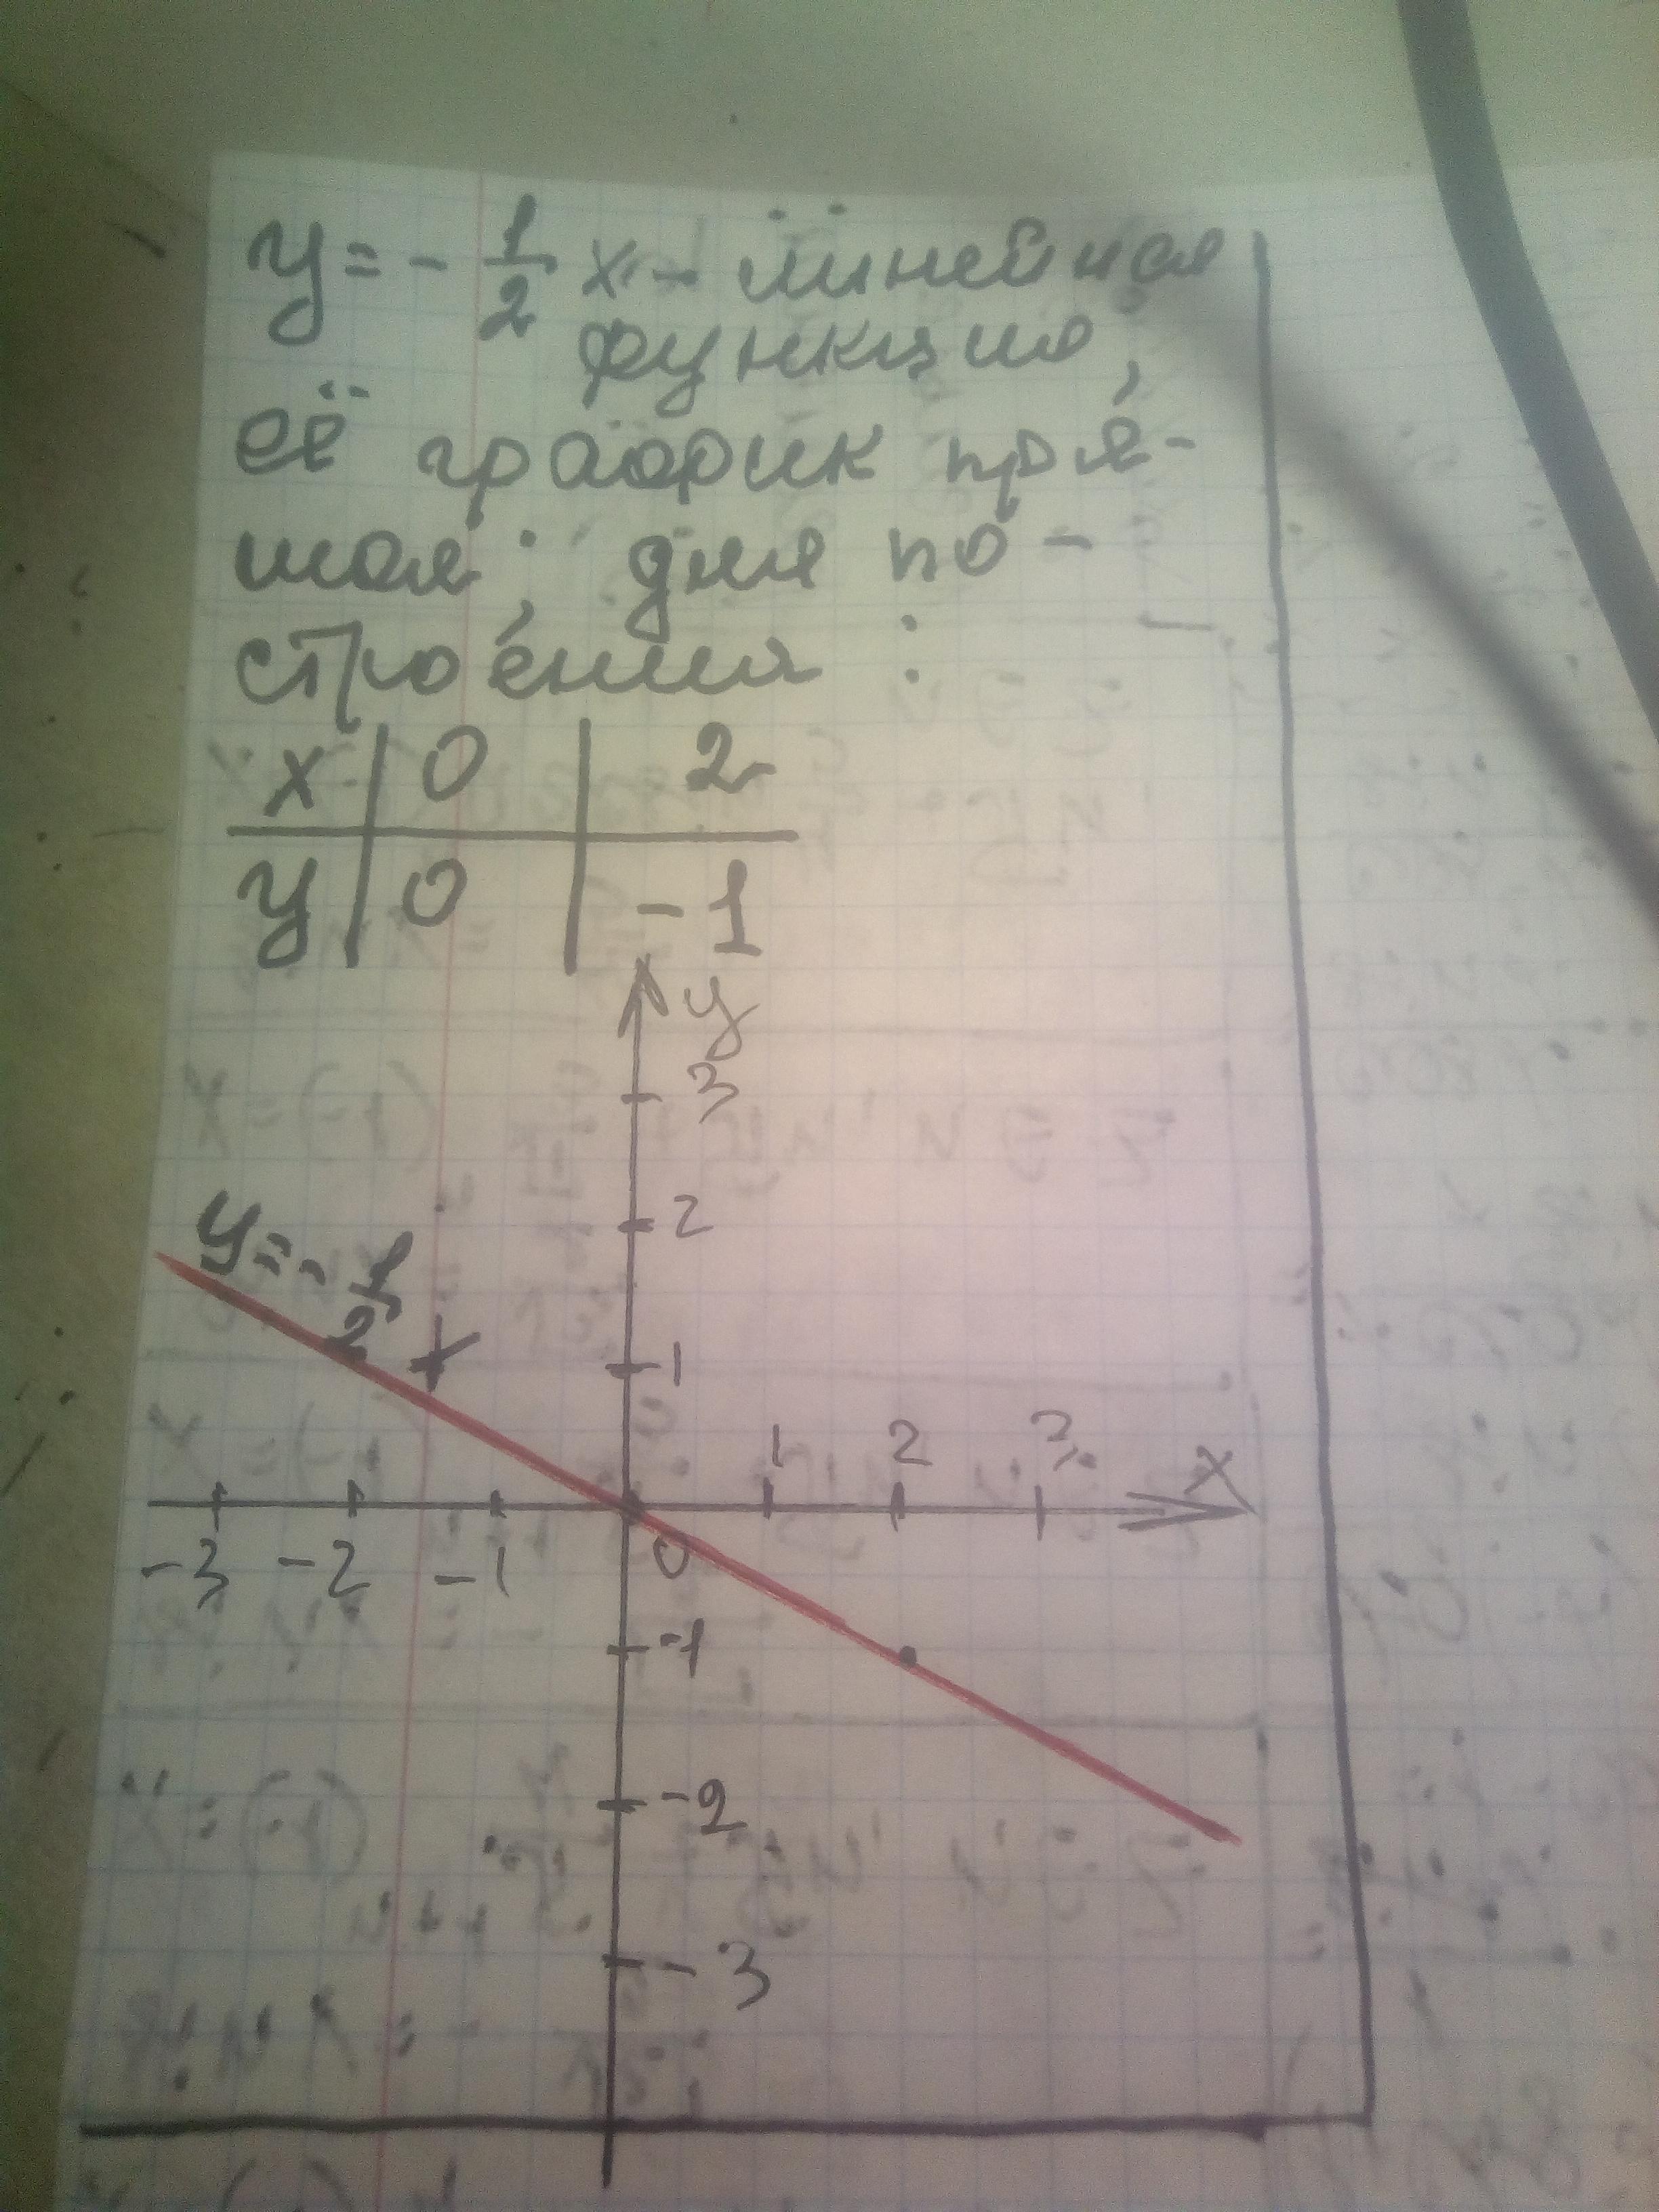 y = - 1/2 x - линейная
функция,
её график пря-
мая; для по-
строения :
x | 0 | 2
y | 0 | -1
y
3
2
y = - 1/2 x
1
1 2 3 x
-3 -2 -1 0
-1
-2
-3